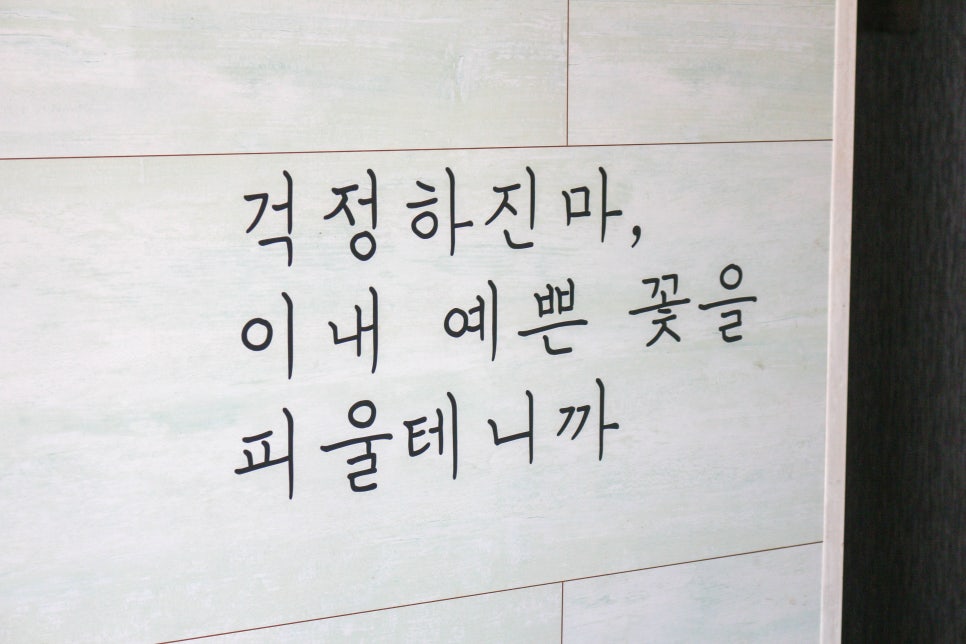 걱정하진마,
이내 예쁜 꽃을
피울테니까